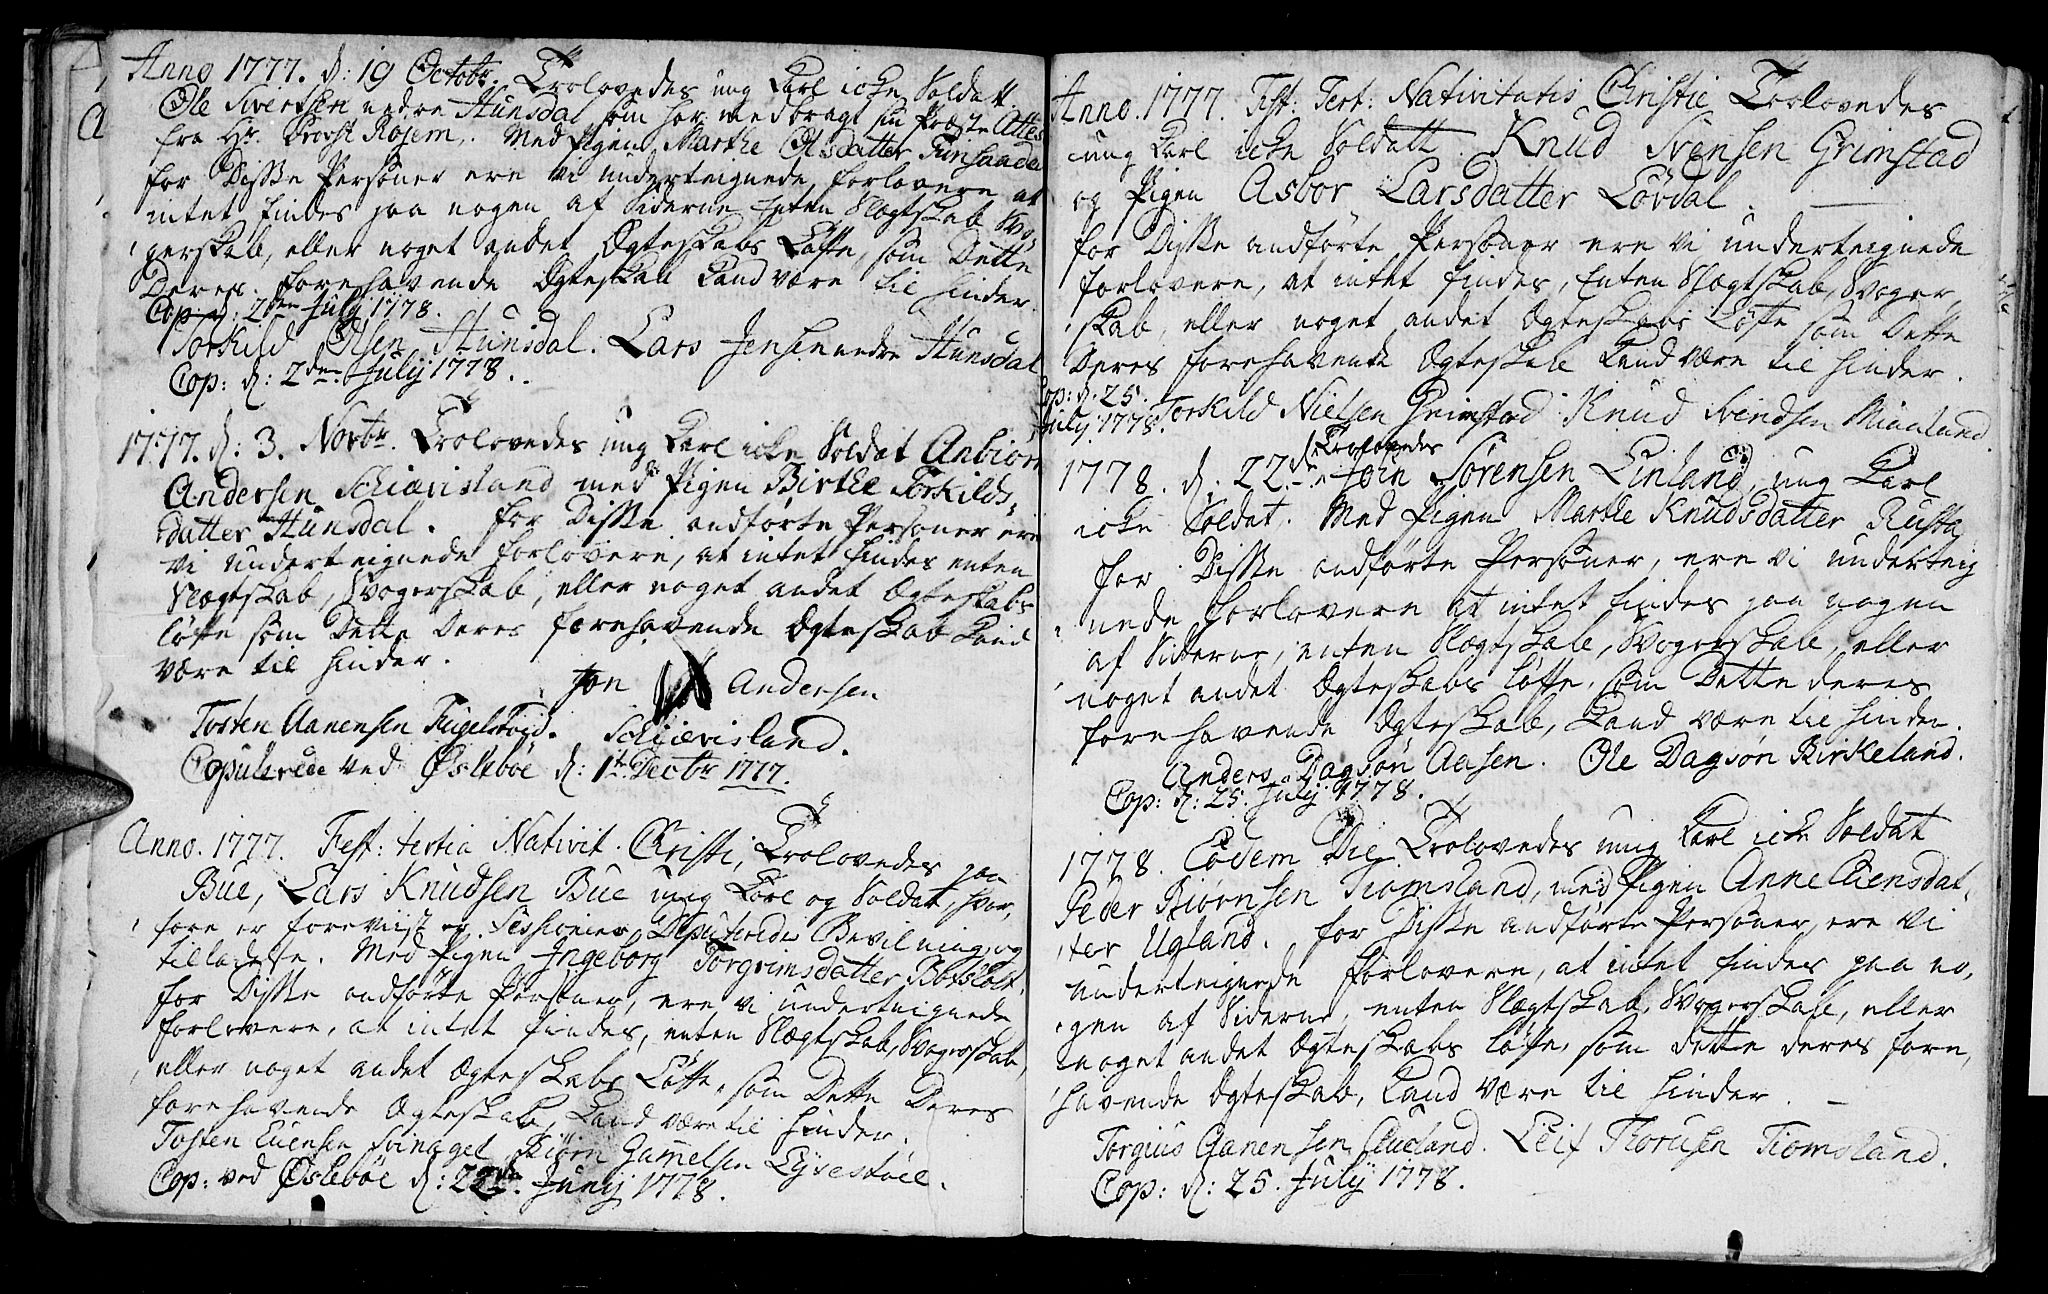 Anno 1777. d: 19 Octobr. Trolovedes ung Karl icke Soldatt
Ole Sivertsen nedre Hunsdal, som har medbragt sin Præste Attest
fra Hr. Provst Rosem. Med Pigen Marthe Olsdatter
for Disse Personer ere Vi underteignede forlovere at
intet findes paa nogen af Siderne enten Slegtskab Svo,
gerskab, eller noget andet Ægteskabs Løffte, som Dette
Deres forehavende Ægteskab kand være til hinder.
Cop: d: 2den July 1778.
Torkild Olsen Hunsdal. Lars Jensen nedre Hunsdal
Cop: d: 2den July 1778.
1777. d: 3. Novbr. Trolovedes ung Karl icke Soldat Anbiørn
Andersen Schiævisland med Pigen Birthe Torkilds,
datter Hunsdal. for Disse andførte Personer ere
vi underteignede forlovere, at intet findes enten
Slegtskab, Svogerskab, eller noget andet Ægteskabs
løffte som Dette Deres forehavende Ægteskab kand
være til hinder.
Jon Andersen
Tosten Aanensen Schiævisland.
Copulerede ved Øslebøe d: 1te Decbr 1777.
Anno. 1777. Fest: tertia Nativit. Christi, Trolovedes paa
Bue, Lars Knudsen Bue ung Karl og Soldat, hvor,
fore er foreviist er Sessionies Deputeredes Bevilning og
tilladelse. Med Pigen Ingeborg Torgrimsdatter
for Disse andførte Personer, ere vi underteignede
forlovere, at intet findes, enten Slegtskab, Svogerskab,
eller noget andet Ægteskabs Løffte, som Dette Deres
forehavende Ægteskab, kand være til hinder.
Tosten Evensen Biørn Gamelsen Lysestøel.
Cop: ved Øslebøe d: 22de Junij 1778.
Anno. 1777. Fest: Tert: Nativitatis Christie Trolovedes
ung Karl icke Soldatt. Knud Svensen Grimstad
og Pigen Asbor Larsdatter Løvdal.
for Disse andførte Personer ere vi underteignede
forlovere, at intet findes, Enten Slegtskab, Svoger,
skab, eller noget andet Ægteskabs Løfte som Dette
Deres forehavende Ægteskab kand være til hinder.
Cop: d. 25.
July. 1778. Torkild Nielsen Grimstad. Knud Svendsen
Trolovedes
1778. d. 22. Join Sørensen Einland, ung Karl
icke Soldat. Med Pigen Marthe Knudsdatter Rusta
for Disse andførte Personer, ere vi underteig
nede forlovere at intet findes paa nogen
af Siderne, enten Slegtskab, Svogerskab, eller
noget andet Ægteskabs løffte, som Dette deres
forehavende Ægteskab, kand være til hinder.
Anders Dagsøn Aasen. Ole Dagsøn Birkeland.
Cop: d: 25. July 1778.
1778. Eodem Die Trolovedes ung Karl icke Soldat
Peder Biørnsen Tiomsland, med Pigen Anne Evensdat,
ter Ugland. for Disse andførte Personer, ere vi
underteignede forlovere, at intet findes paa no,
gen af Siderne, enten Slegtskab, Svogerskab, eller
noget andet Ægteskabs løfte, som dette deres fore,
havende Ægteskab, kand være til hinder.
Torgius Leif Tiomsland.
Cop: d: 25. July 1778.